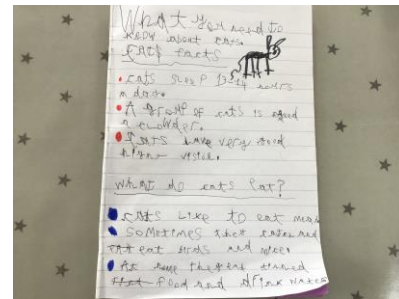 What you need to
know about cats.
Cats facts
• cats sleep 13-14 hours
a day.
• A group of cats is
a clowder.
• Cats have very good
night
What do cats eat?
• cats Like to eat meat
• Sometimes they
eat birds and mice.
• At
food and drink water